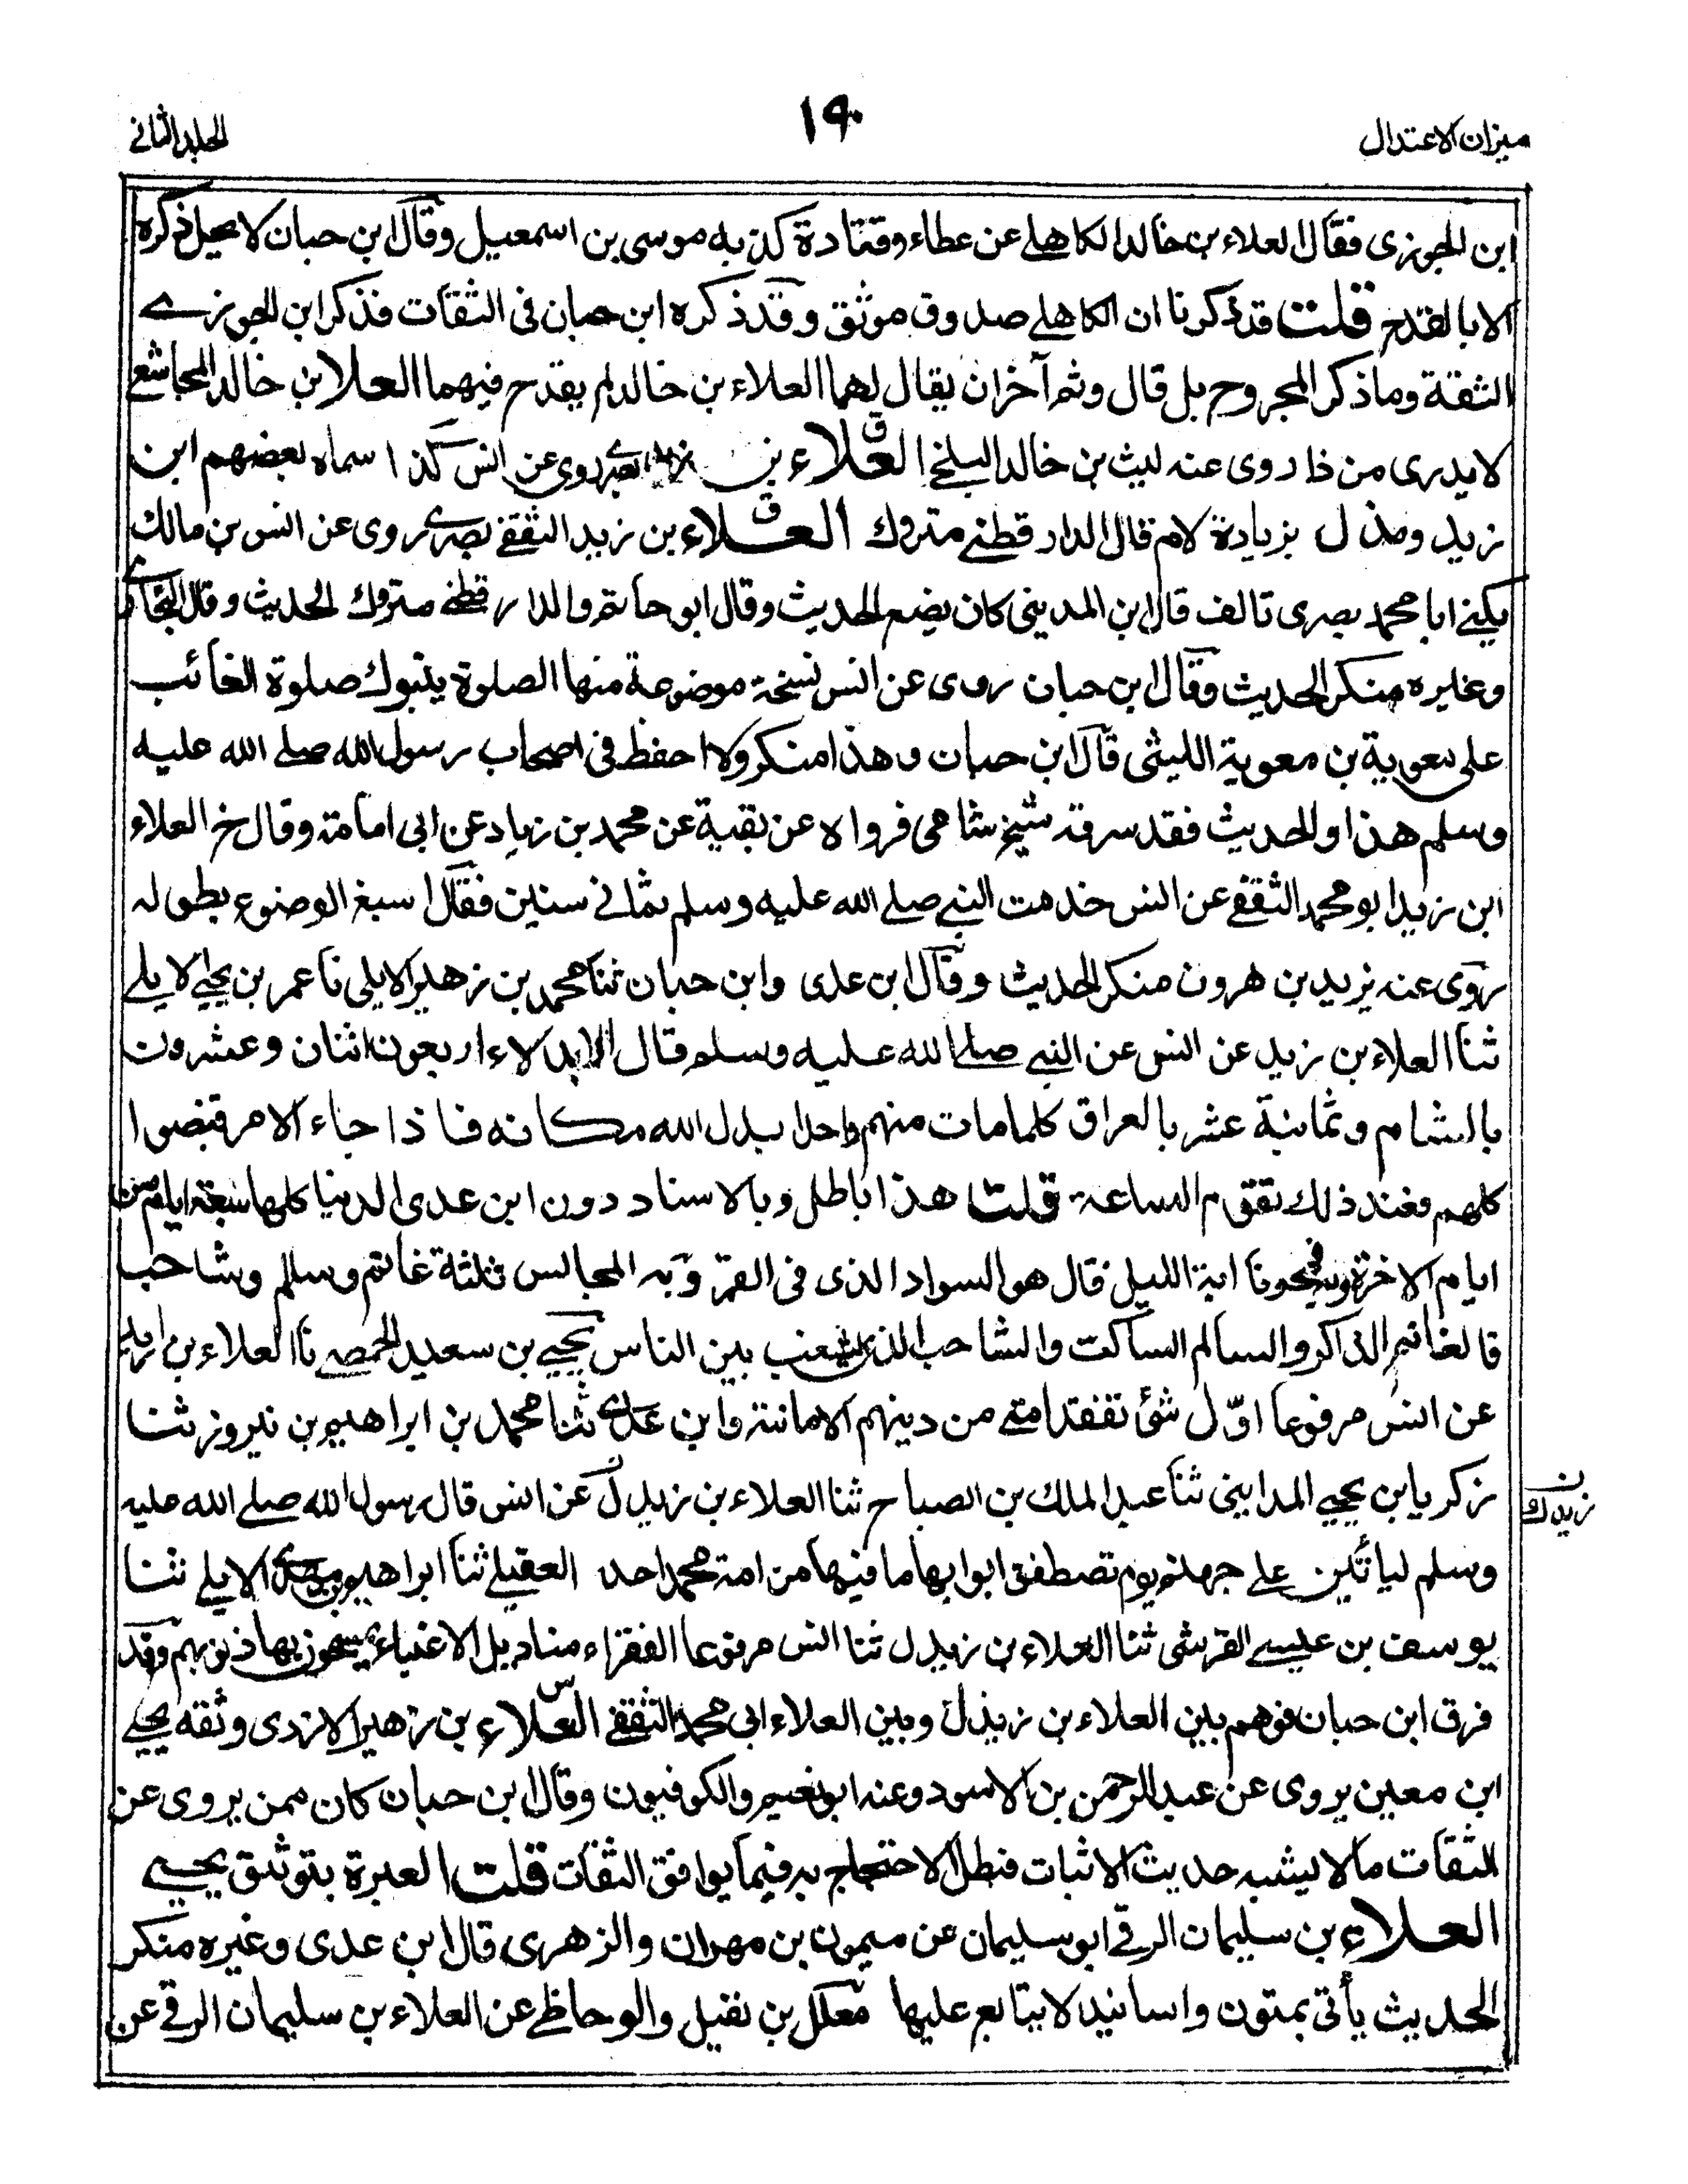 ميزان الاعتدال
١٩٠
الجلد الثاني
ابن الجوزى فقال العلاء بن خالد الكاهلے عن عطاء وقتادة كذبه موسى بن اسمعيل وقال ابن حبان لا يحل ذكره
الا بالقدح قلت قد ذكرنا ان الكاهلے صدوق موثق وقد ذكره ابن حبان فى الثقات فذكر ابن الجوزے
الثقة وما ذكر المجروح بل قال وثم آخران يقال لهما العلاء بن خالد لم يقدح فيهما العلا بن خالد المجاشعے
لا يدرى من ذا روى عنه ليث بن خالد البلخے العلاء بن روى عن انس كذا سماه بعضهم ابن
زيد ومذل بزيادة لام قال الدارقطنے متروك العلاء بن زيد الثقفے بصرے روى عن انس بن مالك
يكنے ابا محمد بصرى تالف قال ابن المدينى كان يضع الحديث وقال ابو حاتم والدارقطنے متروك الحديث وقال البخارے
وغيره منكر الحديث وقال ابن حبان روى عن انس نسخة موضوعة منها الصلوة بتبوك صلوة الغائب
على معوية بن معوية الليثى قال ابن حبان وهذا منكر ولا احفظ فى اصحاب رسول الله صلے الله عليه
وسلم هذا والحديث فقد سرقه شيخ شامى فرواه عن بقية عن محمد بن زياد عن ابى امامة وقال خ العلاء
ابن زيد ابو محمد الثقفے عن انس خدمت النبے صلے الله عليه وسلم ثمانے سنين فقال اسبغ الوضوء بطوله
روى عنه يزيد بن هرون منكر الحديث وقال ابن عدى وابن حبان ثنا محمد بن زهير الايلى نا عمر بن يحيے الايلے
ثنا العلاء بن زيد عن انس عن النبے صلے الله عليه وسلم قال الابدلاء اربعون اثنان وعشرون
بالشام وثمانية عشر بالعراق كلما مات منهم واحد ابدل الله مكانه فاذا جاء الامر قبضوا
كلهم فعند ذلك تقوم الساعة قلت هذا باطل وبالاسناد دون ابن عدى الدنيا كلها سبعة ايام من
ايام الاخرة وبه فمحونا اية الليل قال هو السواد الذى فى القمر وبه المجالس ثلثة غانم وسالم وشاحب
فالغانم الذاكر والسالم الساكت والشاحب الذى يشغب بين الناس يحيے بن سعيد الحمصے نا العلاء بن زيد
عن انس مرفوعا اوّل شئ تفقد امتے من دينهم الامانة وابن عدى ثنا محمد بن ابراهيم بن نيروز ثنا
زكريا بن يحيے المداينى ثنا عبد الملك بن الصباح ثنا العلاء بن زيدل عن انس قال رسول الله صلے الله عليه
زيدك ن
وسلم ليأتين علے جهنم يوم تصطفق ابوابها ما فيها من امة محمد احد العقيلے ثنا ابراهيم بن الايلے ثنا
يوسف بن عيسے القرشى ثنا العلاء بن زيدل ثنا انس مرفوعا الفقراء مناديل الاغنياء يمسحون بها ذنوبهم وقد
فرق ابن حبان فوهم بين العلاء بن زيدل وبين العلاء ابى محمد الثقفے العلاء بن زهير الازدى وثقه يحيے
ابن معين يروى عن عبد الرحمن بن الاسود وعنه ابو نعيم والكوفيون وقال ابن حبان كان ممن يروى عن
الثقات ما لا يشبه حديث الاثبات فبطل الاحتجاج به فيما يوافق الثقات قلت العبرة بتوثيق يحيے
العلاء بن سليمان الرقے ابو سليمان عن ميمون بن مهران والزهرى قال ابن عدى وغيره منكر
الحديث يأتى بمتون واسانيد لا يتابع عليها معلل بن نفيل والوحاظے عن العلاء بن سليمان الرقے عن